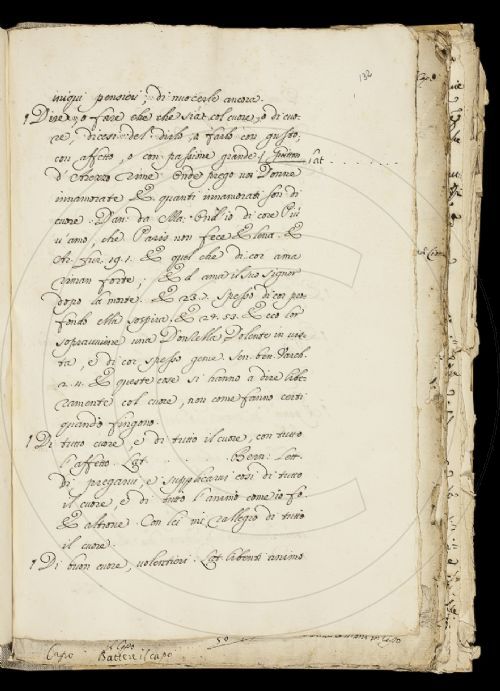 132
iniqui pensieri, di nuocerle ancora.
¶ Dire, o fare che che sia col cuore, o di cuo-
re, dicesi del dirlo, o farlo con gusto,
con affetto, o con passione grande. Guitton
lat. . . . . . . .
d'Arezzo Rime. Onde prego voi Donne
innamorate &. quanti innamorati son di
cuore. Dan. da Maia. Ond'io di core Più
v'amo, che Paris non fece Elena. &
Ar. fur. 19. 1. & quel che di cor ama
riman forte, & ama il suo signor
dopo la morte. & 23. Spesso di cor pro-
fondo ella sospira. & 24. 53. & ecco lor
sopravvenire una Donzella Dolente in vis-
ta, e di cor spesso geme. Sen. ben. Varch.
2. 11. & queste cose si hanno a dire libe-
ramente col cuore, non come fanno certi
quando fingono.
¶ Di tutto cuore, e di tutto il cuore, con tutto
l'affetto. Lat. . . . . Bern: Lett.
di pregarvi, e supplicarvi così di tutto
il cuore, e di tutto l'animo come io fo.
& altrove. Con lei mi rallegro di tutto
il cuore.
¶ Di buon cuore, volentieri. Lat. libenti animo
il Capo
Capo Batter il capo